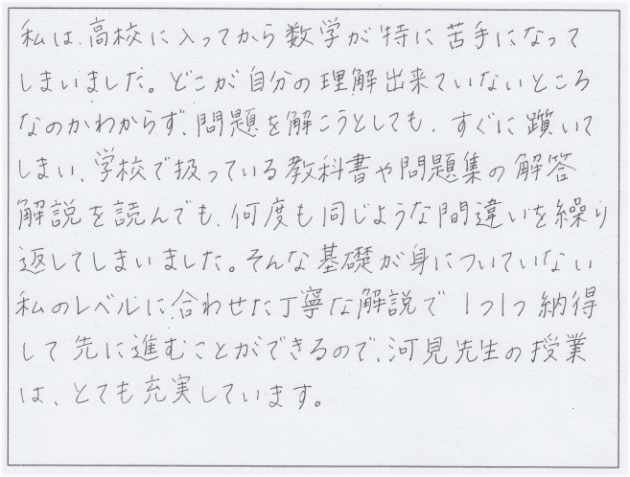 私は、高校に入ってから数学が特に苦手になって
しまいました。どこが自分の理解出来ていないところ
なのかわからず、問題を解こうとしても、すぐに躓いて
しまい、学校で扱っている教科書や問題集の解答
解説を読んでも、何度も同じような間違いを繰り
返してしまいました。そんな基礎が身についていない
私のレベルに合わせた丁寧な解説で1つ1つ納得
して先に進むことができるので、河見先生の授業
は、とても充実しています。